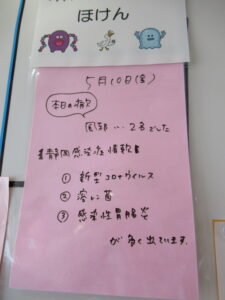 ほけん
5月10日(金)
本日の欠
風邪‥2名でした
静岡感染症情報
① 新型コロナウイルス
② 溶レン菌
③ 感染性胃腸炎
が多く出ています。